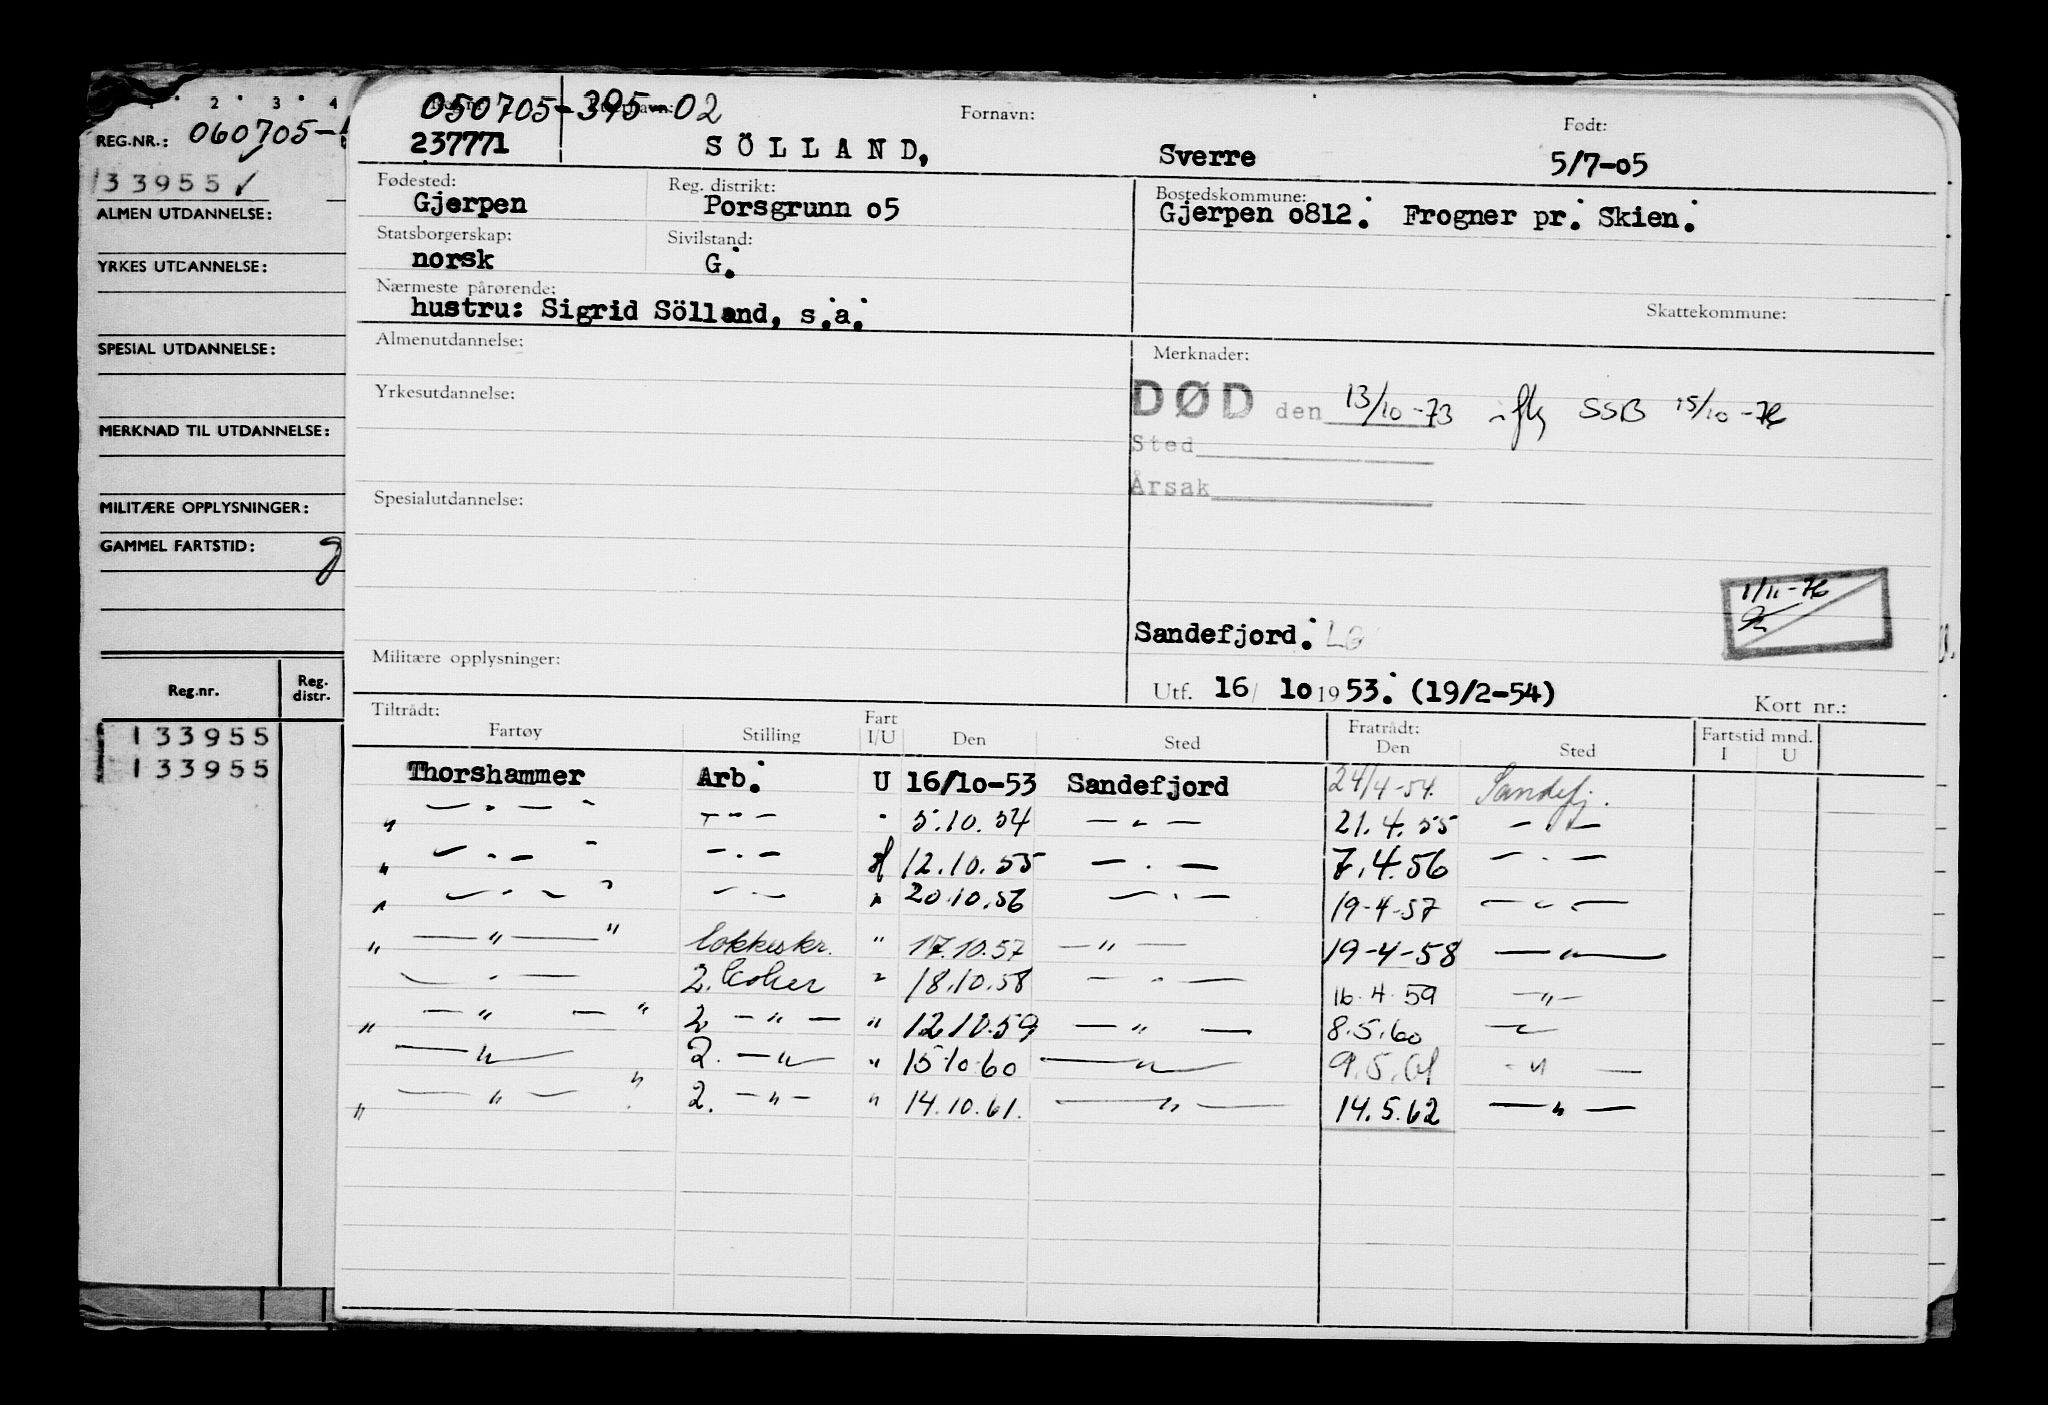 1 2 3 4
REG.NR.: 060705-
133955 ✓
ALMEN UTDANNELSE:
YRKES UTDANNELSE:
SPESIAL UTDANNELSE:
MERKNAD TIL UTDANNELSE:
MILITÆRE OPPLYSNINGER:
GAMMEL FARTSTID:
Reg.nr. Reg. distr.
133955
133955
050705-395-02 Fornavn: Født:
237771 SÖLLAND, Sverre 5/7-05
Fødested: Reg. distrikt: Bostedskommune:
Gjerpen Porsgrunn 05 Gjerpen 0812. Frogner pr. Skien.
Statsborgerskap: Sivilstand:
norsk G.
Nærmeste pårørende:
hustru: Sigrid Sölland, s.a.
Skattekommune:
Almenutdannelse: Merknader:
DØD den 13/10-73 iflg SSB 15/10-76
Yrkesutdannelse:
Sted
Årsak
Spesialutdannelse:
1/11-76
Sandefjord. LG
Militære opplysninger:
Utf. 16/ 10 1953. (19/2-54) Kort nr.:
Tiltrådt: Fratrådt: Fartstid mnd.
Fartøy Stilling Fart I/U Den Sted Den Sted I U
Thorshammer Arb. U 16/10-53 Sandefjord 24/4-54. Sandefj.
" — " — " — " — " 5.10.54 — " — 21.4.55 — " —
" — " — " — " — " 12.10.55 — " — 7.4.56 — " —
" — " — " — " — " 20.10.56 — " — 19-4-57 — " —
" — " — " kokkeskr. " 17.10.57 — " — 19-4-58 — " —
— " — 2. koker " 18.10.58 — " — 16.4.59 — " —
" — " — " 2 — " — " 12.10.59 — " — 8.5.60 — " —
— " — 2. — " — " 15.10.60 — " — 9.5.61 — " —
" — " — " 2. — " — " 14.10.61. — " — 14.5.62 — " —